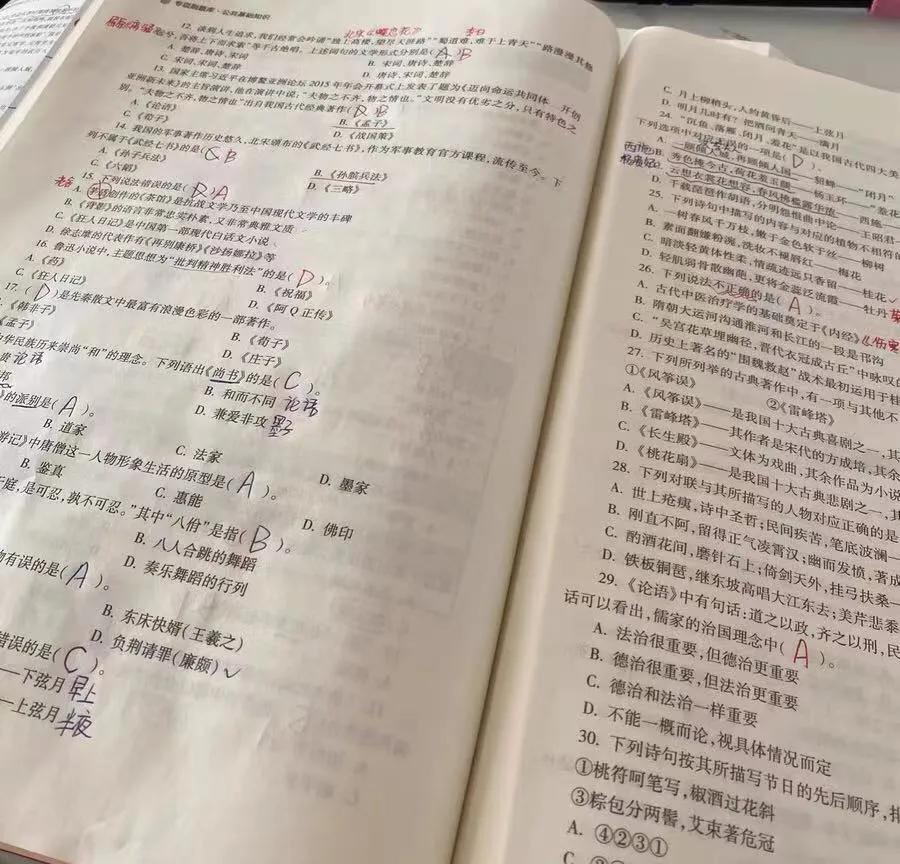 专项刷题库·公共基础知识
北宋《蝶恋花》
李白
屈原《离骚》
12. 谈到人生追求,我们经常会吟诵“独上高楼,望尽天涯路”“蜀道难,难于上青天”“路漫漫其修
远兮,吾将上下而求索”等千古绝唱。上述词句的文学形式分别是( A )B
A. 楚辞、唐诗、宋词
B. 宋词、唐诗、楚辞
C. 宋词、宋词、楚辞
D. 唐诗、宋词、楚辞
13. 国家主席习近平在博鳌亚洲论坛2015年年会开幕式上发表了题为《迈向命运共同体 开创
亚洲新未来》的主旨演讲,他在演讲中说:“夫物之不齐,物之情也。”文明没有优劣之分,只有特色之
别。“夫物之不齐,物之情也”出自我国古代经典著作( B
A. 《论语》
B. 《孟子》
C. 《荀子》
D. 《战国策》
14. 我国的军事著作历史悠久,北宋颁布的《武经七书》,作为军事教育官方课程,流传至今。下
列不属于《武经七书》的是( B
A. 《孙子兵法》
B. 《孙膑兵法》
C. 《六韬》
D. 《三略》
15. 下列说法错误的是( A
老舍
A. 创作的《茶馆》是抗战文学乃至中国现代文学的丰碑
B. 《背影》的语言非常忠实朴素,又非常典雅文质
C. 《狂人日记》是中国第一部现代白话文小说
D. 徐志摩的代表作有《再别康桥》《沙扬娜拉》等
16. 鲁迅小说中,主题思想为“批判精神胜利法”的是( D )。
A. 《药》
B. 《祝福》
C. 《狂人日记》
D. 《阿Q正传》
17. ( D )是先秦散文中最富有浪漫色彩的一部著作。
《韩非子》
B. 《荀子》
《孟子》
D. 《庄子》
华民族历来崇尚“和”的理念。下列语出《尚书》的是( C )。
贵 论语
B. 和而不同 论语
邦
D. 兼爱非攻 墨子
的派别是( A )。
B. 道家
C. 法家
D. 墨家
游记》中唐僧这一人物形象生活的原型是( A )。
B. 鉴真
C. 惠能
D. 佛印
于庭,是可忍,孰不可忍。”其中“八佾”是指( B )。
B. 八人合跳的舞蹈
D. 奏乐舞蹈的行列
物有误的是( A )。
B. 东床快婿(王羲之)
D. 负荆请罪(廉颇)✓
错误的是( C )。
——下弦月 早上
——上弦月 半夜
C. 月上柳梢头,人约黄昏后——上弦月
D. 明月几时有?把酒问青天——满月
24. “沉鱼、落雁、闭月、羞花”是以我国古代四大美
下列选项中对应正误的一项是( D )。
A. 一顾倾人城,再顾倾人国——貂蝉——“闭月”
西施
B. 秀色掩今古,荷花羞玉颜——杨玉环——“羞花
杨贵妃
C. 云想衣裳花想容,春风拂槛露华浓——西施—
D. 千载琵琶作胡语,分明怨恨曲中论——王昭君—
25. 下列诗句中描写的内容与对应的植物不相符的
A. 一树春风千万枝,嫩于金色软于丝——柳树
B. 素面翻嫌粉涴,洗妆不褪唇红——梅花
C. 暗淡轻黄体性柔,情疏迹远只香留——桂花✓
D. 轻肌弱骨散幽葩,更将金蕊泛流霞——牡丹
26. 下列说法不正确的是( A )。
A. 古代中医治疗学的基础奠定于《内经》《伤寒
B. 隋朝大运河沟通淮河和长江的一段是邗沟
C. “吴宫花草埋幽径,晋代衣冠成古丘”中咏叹的
D. 历史上著名的“围魏救赵”战术最初运用于桂
27. 下列所列举的古典著作中,有一项与其他不
①《风筝误》
②《雷峰塔》
A. 《风筝误》——是我国十大古典喜剧之一,其
B. 《雷峰塔》——其作者是宋代的方成培,其余
C. 《长生殿》——文体为戏曲,其余作品为小说
D. 《桃花扇》——是我国十大古典悲剧之一,其
28. 下列对联与其所描写的人物对应正确的是
A. 世上疮痍,诗中圣哲;民间疾苦,笔底波澜—
B. 刚直不阿,留得正气凌霄汉;幽而发愤,著成
C. 酌酒花间,磨针石上;倚剑天外,挂弓扶桑—
D. 铁板铜琶,继东坡高唱大江东去;美芹悲黍
29. 《论语》中有句话:道之以政,齐之以刑,民
话可以看出,儒家的治国理念中( A )。
A. 法治很重要,但德治更重要
B. 德治很重要,但法治更重要
C. 德治和法治一样重要
D. 不能一概而论,视具体情况而定
30. 下列诗句按其所描写节日的先后顺序,排
①桃符呵笔写,椒酒过花斜
③粽包分两髻,艾束著危冠
A. ④②③①
C.